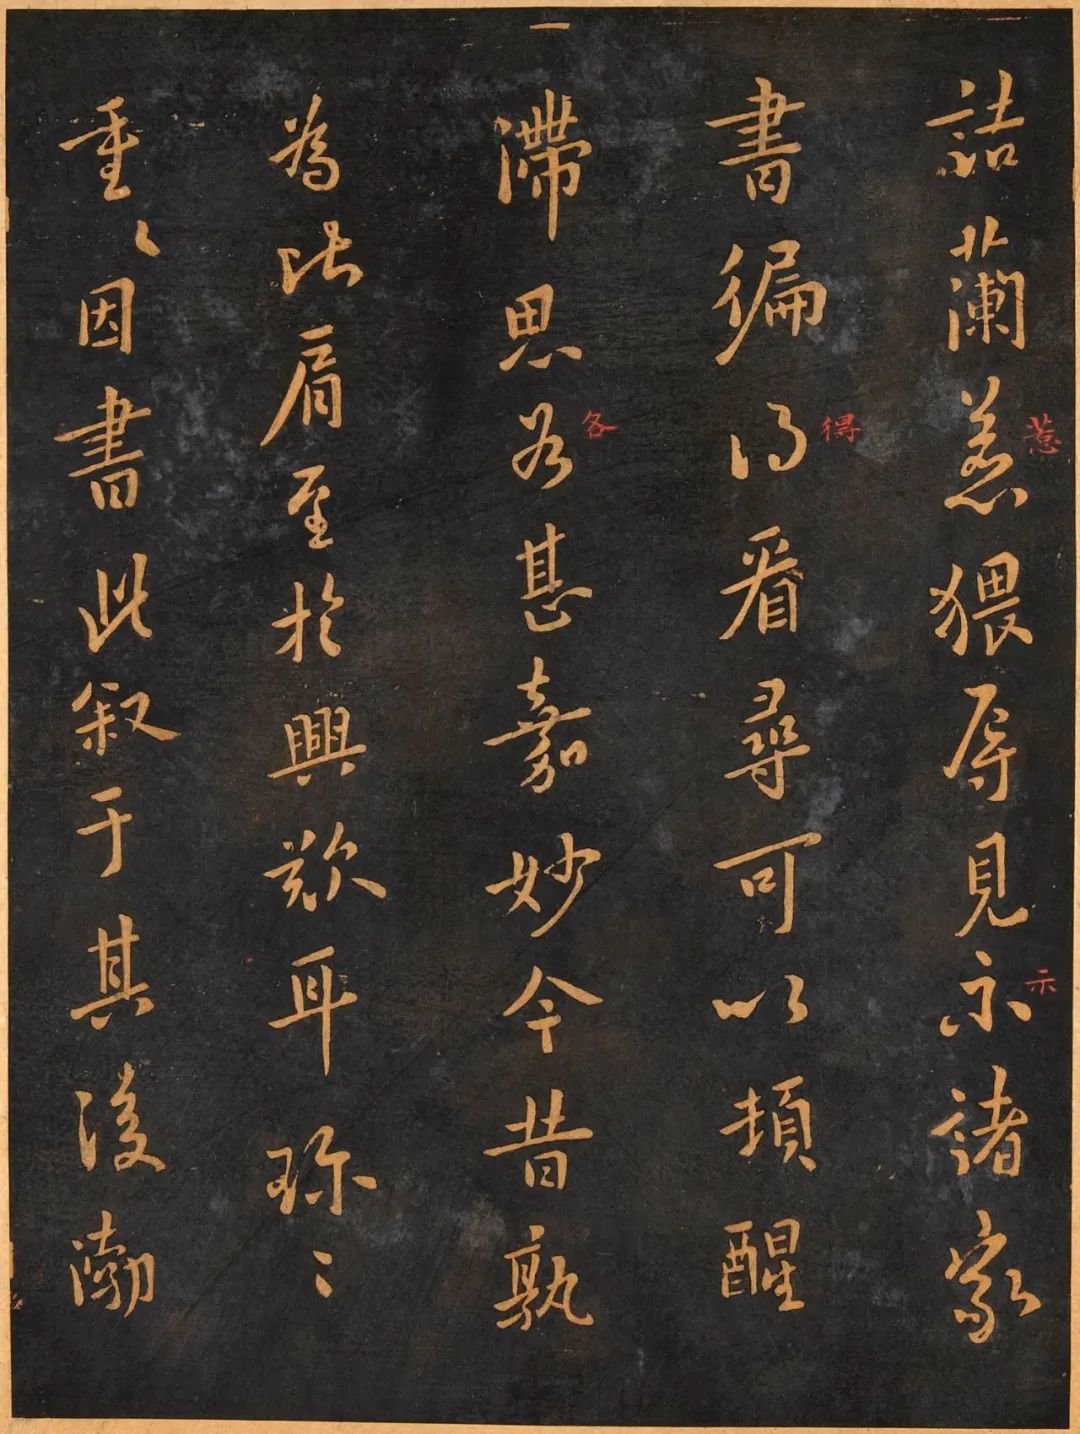 詰蘭惹猥辱見示諸家
惹
示
書徧得看尋可以頓醒
得
一
滯思各甚嘉妙今昔孰
各
為比肩至於興歎耳珎〻
重〻因書此叙于其後渤